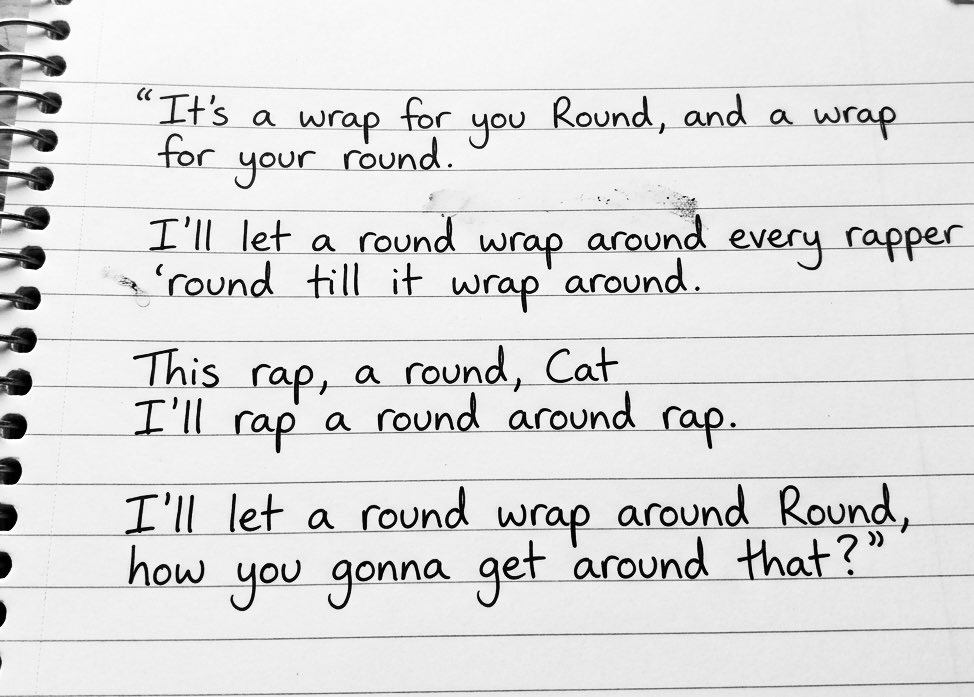 “It's a wrap for you Round, and a wrap
for your round.
I'll let a round wrap around every rapper
‘round till it wrap around.
This rap, a round, Cat
I'll rap a round around rap.
I'll let a round wrap around Round,
how you gonna get around that?”